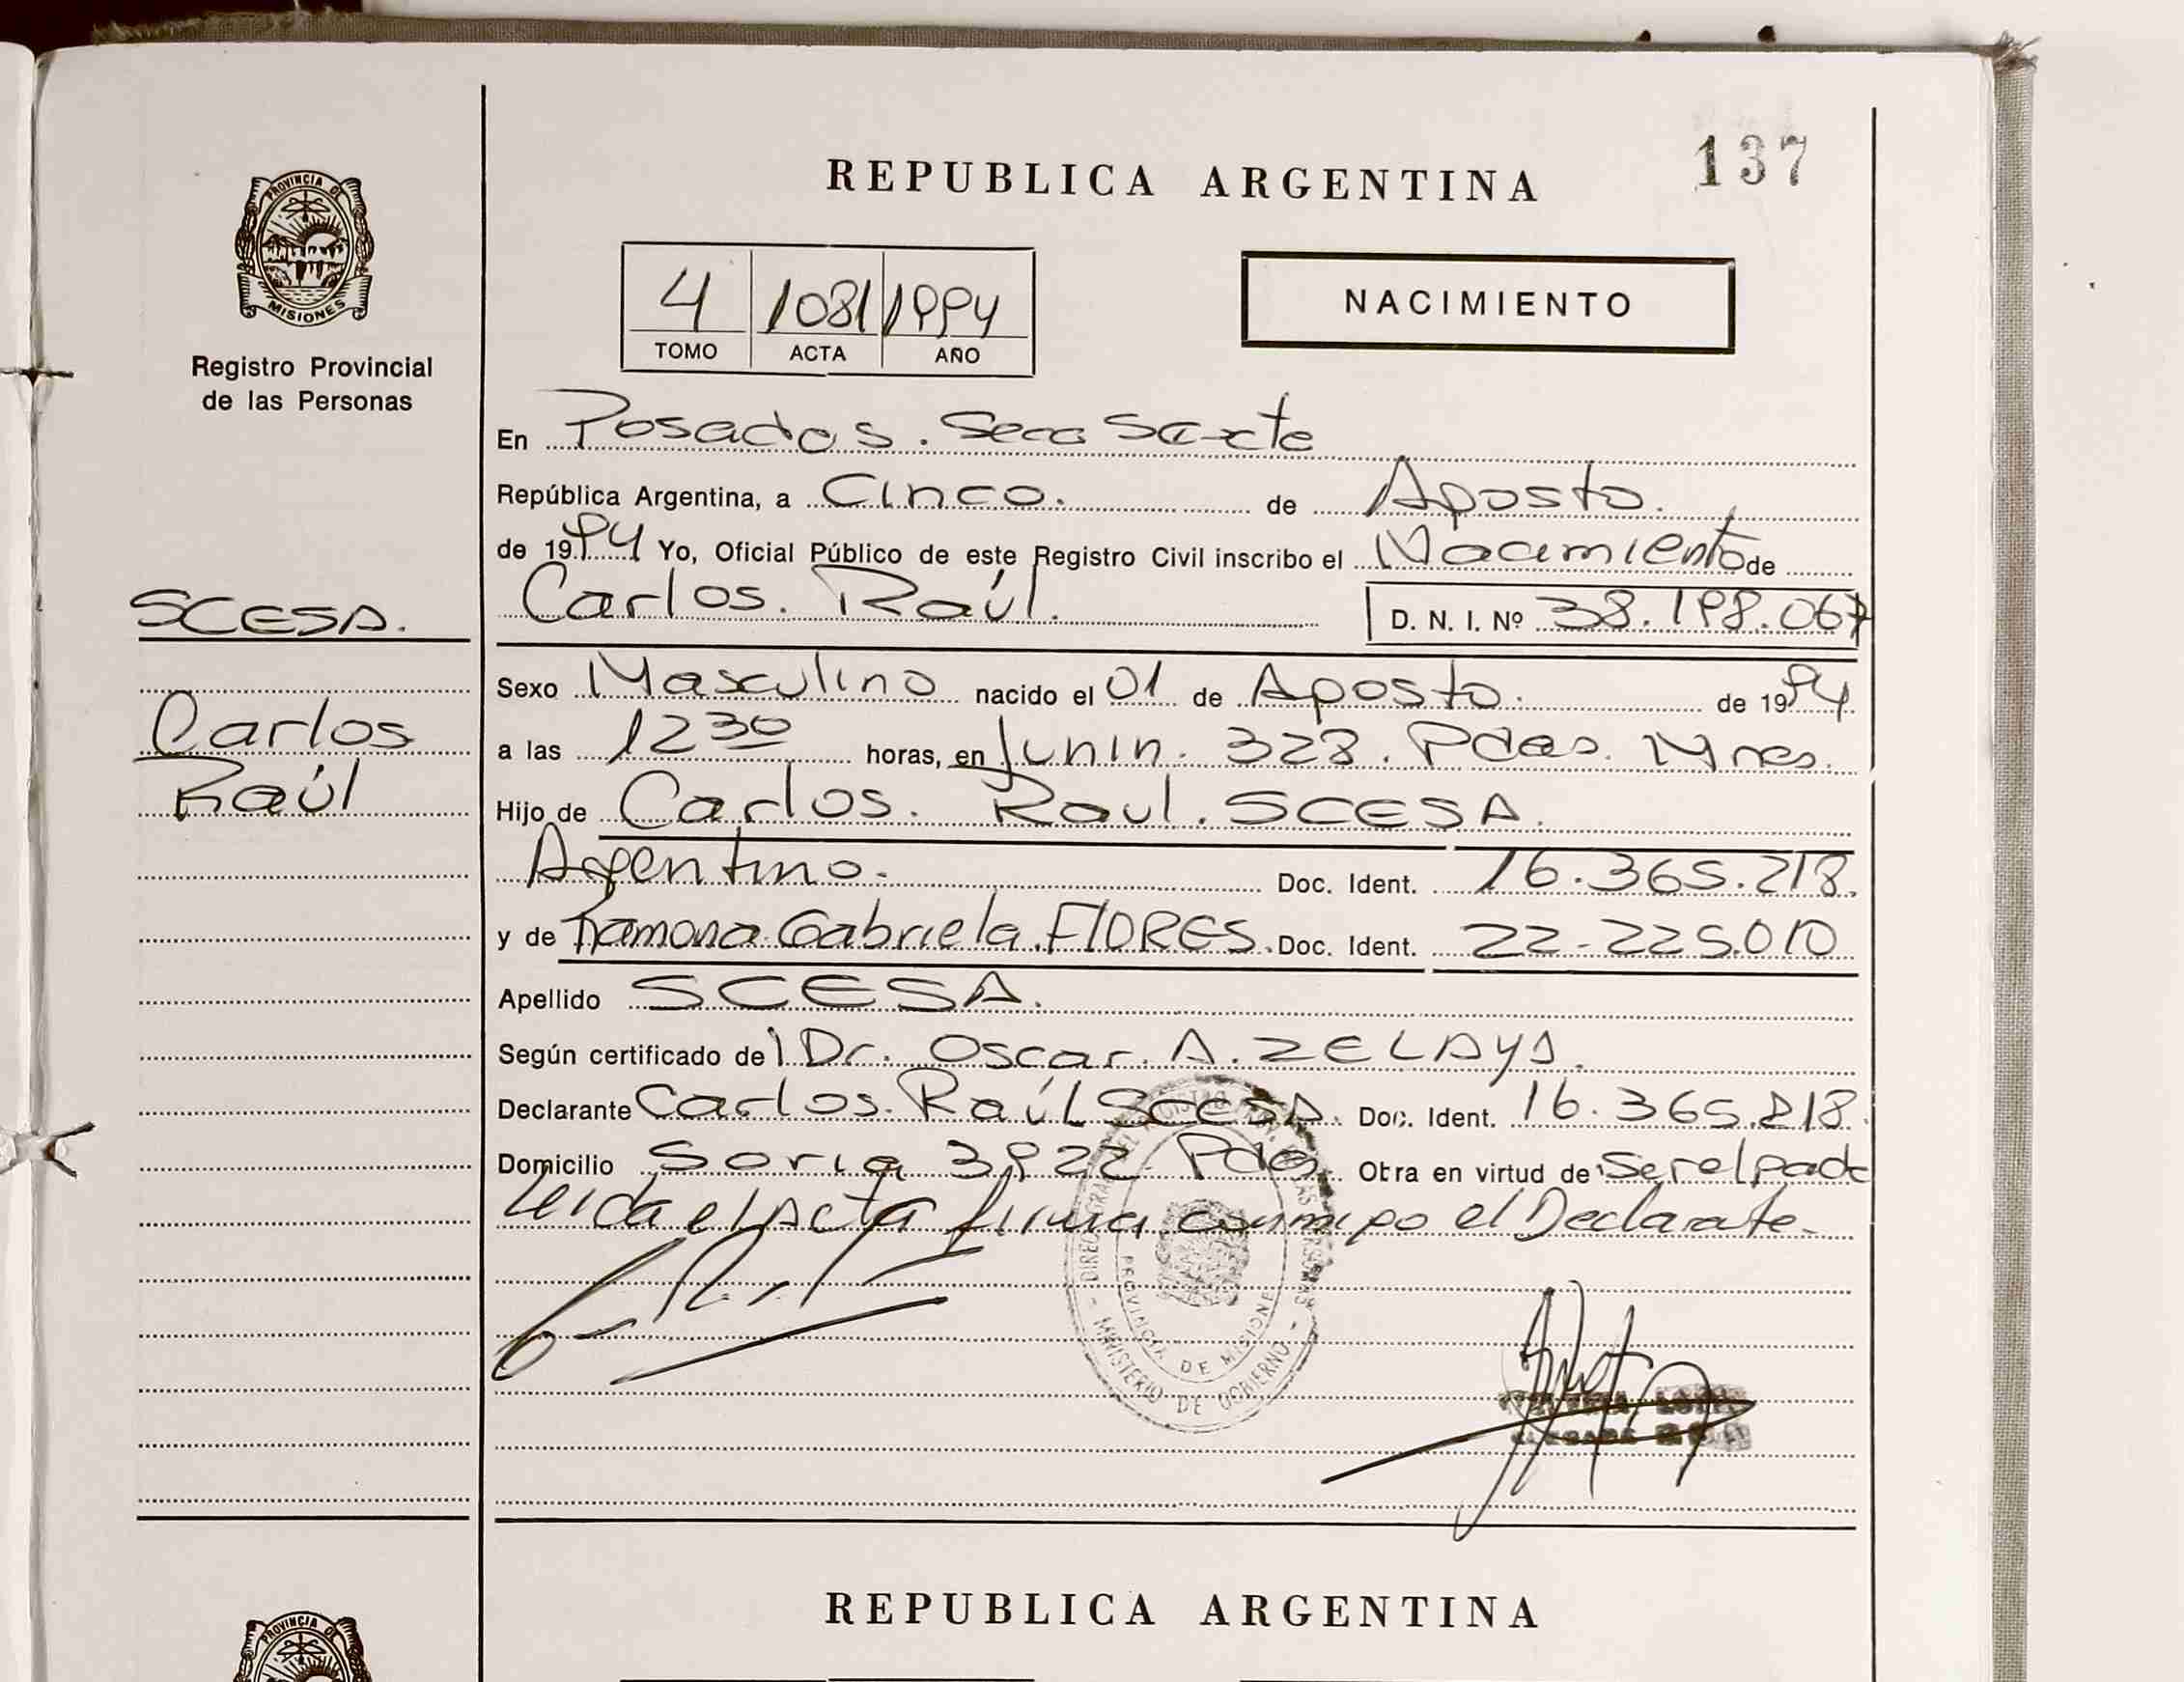 137
REPUBLICA ARGENTINA
PROVINCIA DE
MISIONES
Registro Provincial
de las Personas
4 1081 1994
TOMO ACTA AÑO
NACIMIENTO
En Posadas. Secc Sexta
República Argentina, a Cinco. de Agosto.
de 1994 Yo, Oficial Público de este Registro Civil inscribo el Nacimiento de
Carlos. Raúl. D. N. I. Nº 38.198.067
SCESA.
Carlos
Raúl
Sexo Masculino nacido el 01 de Agosto. de 1994
a las 12 30 horas, en Junin. 328. Pdas. Mnes.
Hijo de Carlos. Raul. SCESA.
Argentino. Doc. Ident. 16.365.218.
y de Ramona Gabriela FLORES. Doc. Ident. 22-225.010
Apellido SCESA.
Según certificado del Dr. Oscar. A. ZELAYA.
Declarante Carlos. Raúl SCESA. Doc. Ident. 16.365.218.
Domicilio Soria 3922 Pdas. Otra en virtud de Ser el padre
Leida el Acta firma conmigo el Declarante-
PROVINCIA DE MISIONES
MINISTERIO DE GOBIERNO
REPUBLICA ARGENTINA
PROVINCIA DE